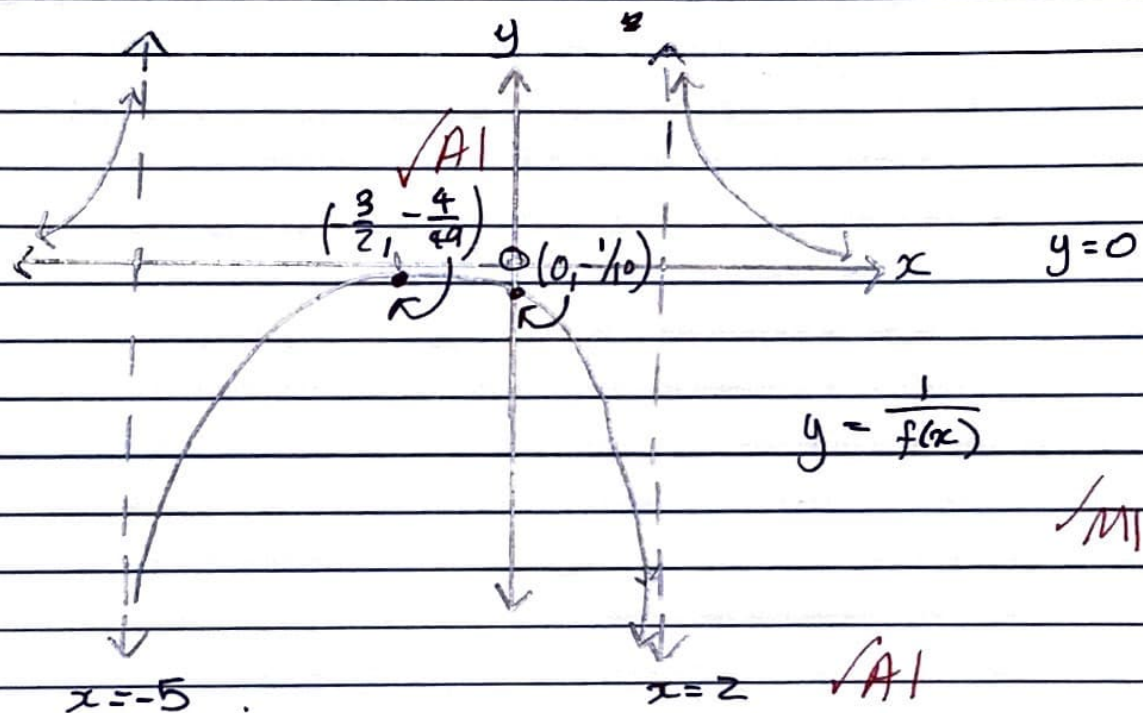 y
√A1
(-3/2, -4/49)
(0, -1/10)
x
y=0
y = 1/f(x)
√M1
x=-5
x=2
√A1